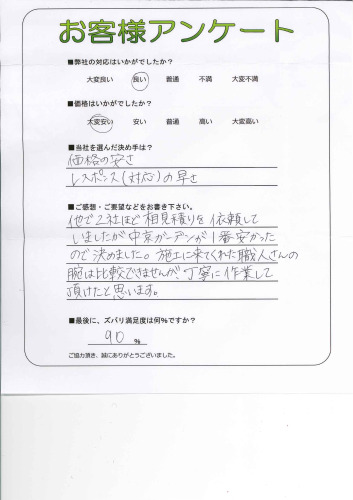 お客様アンケート
■弊社の対応はいかがでしたか？
大変良い 良い 普通 不満 大変不満
■価格はいかがでしたか？
大変安い 安い 普通 高い 大変高い
■当社を選んだ決め手は？
価格の安さ
レスポンス(対応)の早さ
■ご感想・ご要望などをお書き下さい。
他で2社ほど相見積りを依頼して
いましたが中京ガーデンが1番安かった
ので決めました。施工に来てくれた職人さんの
腕は比較できませんが、丁寧に作業して
頂けたと思います。
■最後に、ズバリ満足度は何%ですか？
90 %
ご協力頂き、誠にありがとうございました。